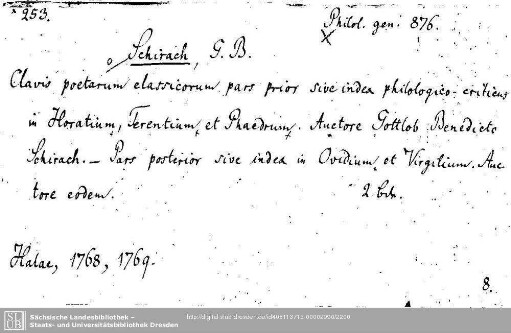 253.
Philol. gen. 876.
Schirach, G. B.
Clavis poetarum classicorum pars prior sive index philologico-criticus
in Horatium, Terentium, et Phaedrum. Auctore Gottlob Benedicto
Schirach. – Pars posterior sive index in Ovidium, et Virgilium. Auc-
tore eodem. 2 bde.
Halae, 1768, 1769.
8.
SLUB
Sächsische Landesbibliothek –
Staats- und Universitätsbibliothek Dresden